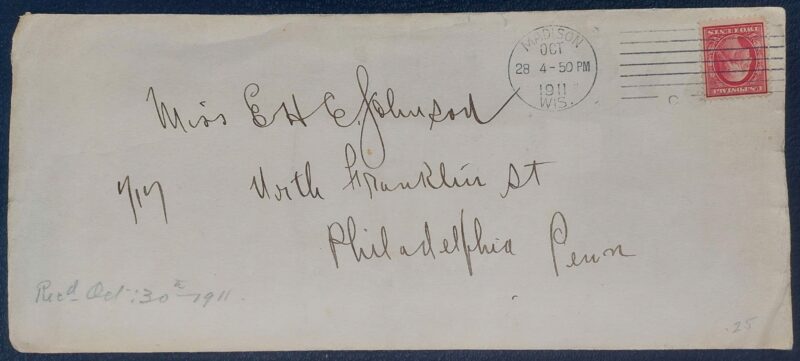 MADISON
OCT
28 4-50 PM
1911
WIS.
TWO CENTS
U.S. POSTAGE
Miss E H E. Johnson
North Franklin St
Philadelphia Penn
Rec'd Oct: 30th 1911.
.25